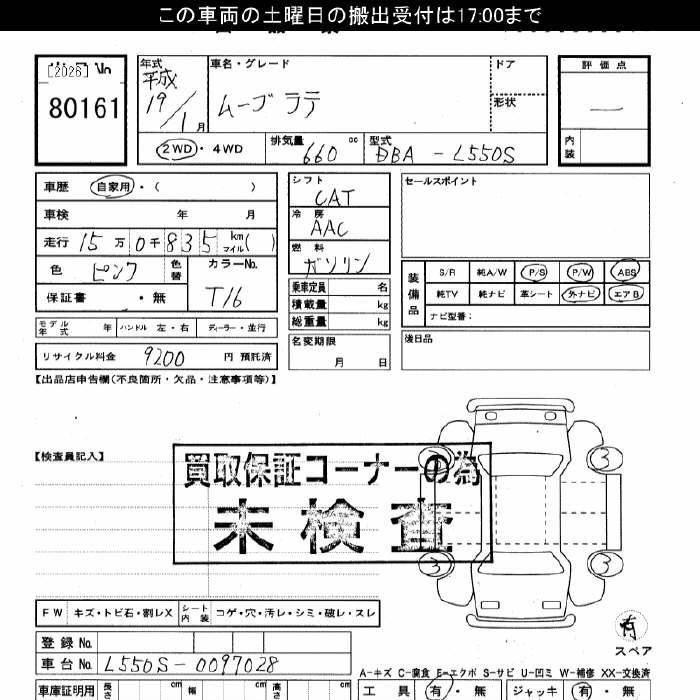 この車両の土曜日の搬出受付は17:00まで
[2026]
80161
年式 平成 19/1月
車名・グレード
ムーブ ラテ
ドア
形状
評価点
内装
2WD・4WD
排気量 660 cc
型式 DBA-L550S
車歴 自家用・( )
車検 年 月
走行 15万0千835 km マイル( )
色 ピンク
色替
カラーNo. T16
保証書 ・無
モデル年式 年 ハンドル 左・右 ディーラー・並行
リサイクル料金 9200 円 預託済
シフト CAT
冷房 AAC
燃料 ガソリン
乗車定員 名
積載量 kg
総重量 kg
名変期限
月 日
セールスポイント
装備品
S/R 純A/W P/S P/W ABS
純TV 純ナビ 革シート 外ナビ エアB
ナビ型番:
後日品
【出品店申告欄(不良箇所・欠品・注意事項等)】
【検査員記入】
買取保証コーナーの為
未検査
3 3
3 3
有
スペア
FW キズ・トビ石・割レX シート内装 コゲ・穴・汚レ・シミ・破レ・スレ
登録No.
車台No. L550S-0097028
A-キズ C-腐食 E-エクボ S-サビ U-凹ミ W-補修 XX-交換済
車庫証明用 長さ cm 幅 cm 高さ cm
工具 有・無 ジャッキ 有・無